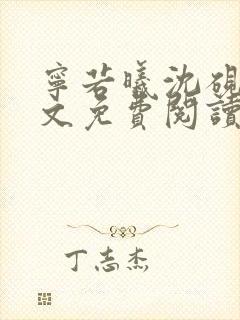 寧若曦沈硯
文免費閱讀
丁志杰